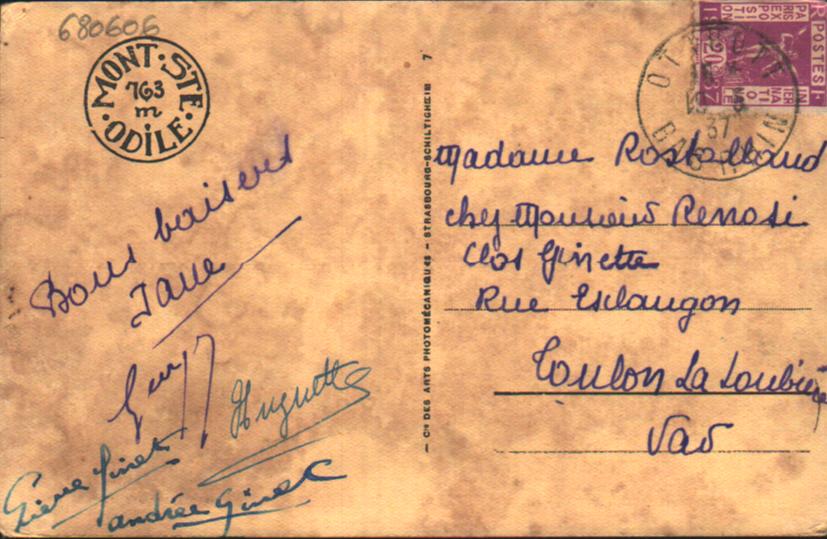 680606
MONT · STE · ODILE ·
763
m
Bons baisers
Jane
Guy
Huguette
Pierre Ginet
andrée Ginet
Cie DES ARTS PHOTOMÉCANIQUES — STRASBOURG-SCHILTIGHEIM 7
POSTES
EXPOSITION
PARIS
INTERNATIONALE
1937
OTTROTT
37
BAS-RHIN
Madame Rostolland
chez Monsieur Renosi
Clos Ginette
Rue Esclangon
Toulon La Loubière
Var